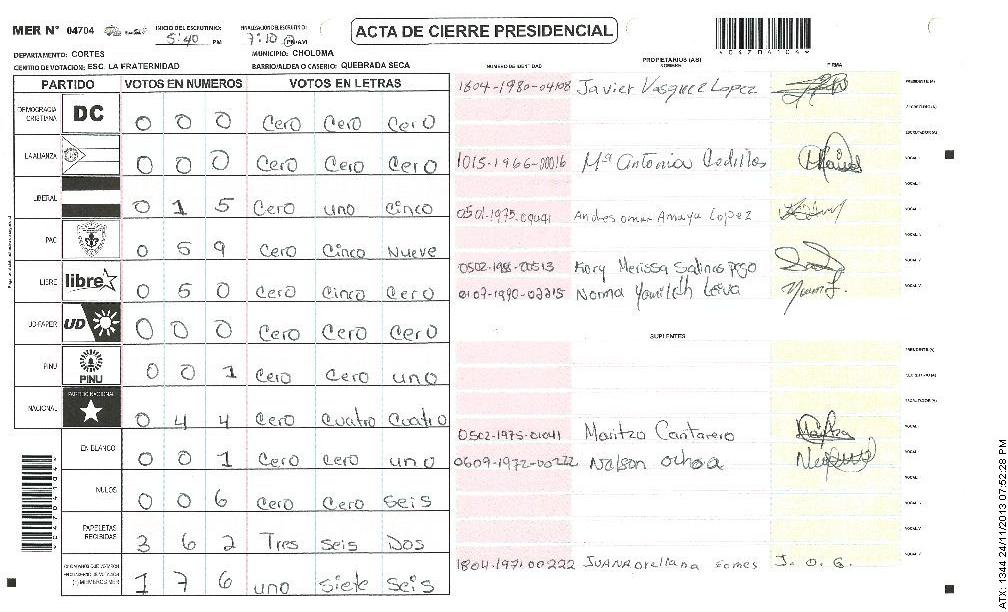 MER N° 04704
INICIO DEL ESCRUTINIO: 5:40 PM
FINALIZACION DEL ESCRUTINIO: 7:10 PM/AM
ACTA DE CIERRE PRESIDENCIAL
DEPARTAMENTO: CORTES
MUNICIPIO: CHOLOMA
CENTRO DE VOTACION: ESC. LA FRATERNIDAD
BARRIO/ALDEA O CASERIO: QUEBRADA SECA
PARTIDO VOTOS EN NUMEROS VOTOS EN LETRAS
DEMOCRACIA CRISTIANA DC 0 0 0 Cero Cero Cero
LA ALIANZA 0 0 0 Cero Cero Cero
LIBERAL 0 1 5 Cero uno Cinco
PAC 0 5 9 Cero Cinco Nueve
LIBRE libre 0 5 0 Cero Cinco Cero
UD-FAPER UD 0 0 0 Cero Cero Cero
PINU PINU 0 0 1 Cero Cero uno
NACIONAL PARTIDO NACIONAL 0 4 4 Cero Cuatro Cuatro
EN BLANCO 0 0 1 Cero Cero uno
NULOS 0 0 6 Cero Cero Seis
PAPELETAS RECIBIDAS 3 6 2 Tres Seis Dos
1 7 6 uno Siete Seis
NUMERO DE IDENTIDAD PROPIETARIOS (AS) NOMBRE FIRMA
1804-1980-04108 Javier Vasquez Lopez PRESIDENTE (A)
SECRETARIO (A)
ESCRUTADOR (A)
1015-1966-00016 Mª Antonia Cedillos VOCAL
0501-1975-09041 Andres omar Amaya Lopez
0502-1988-00513 Kory Merissa Salinas
0107-1990-02215 Norma
SUPLENTES
PRESIDENTE (A)
0502-1975-01041 Maritza Cantarero
0609-1972-00222 Nelson ochoa
1804-1971-00222 JUANA orellana Gomes J. O. G.
ATX: 1344 24/11/2013 07:52:28 PM